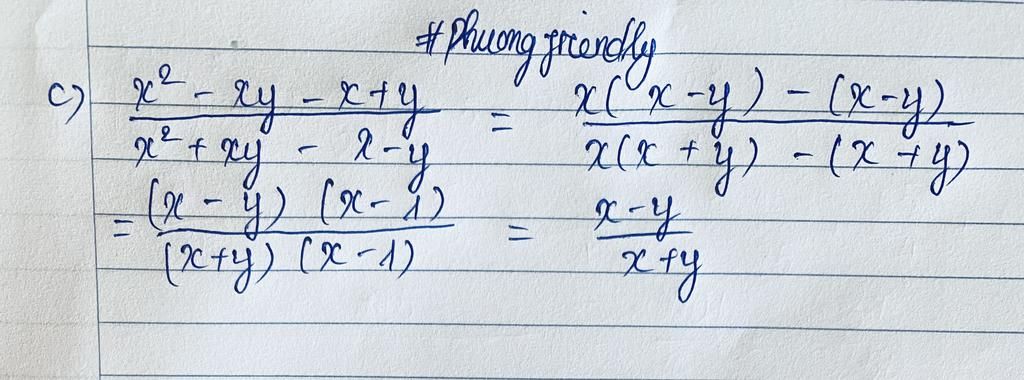 #Phuongfriendly
c) (x² - xy - x + y)/(x² + xy - x - y) = (x(x - y) - (x - y))/(x(x + y) - (x + y))
= ((x - y) (x - 1))/((x + y) (x - 1)) = (x - y)/(x + y)